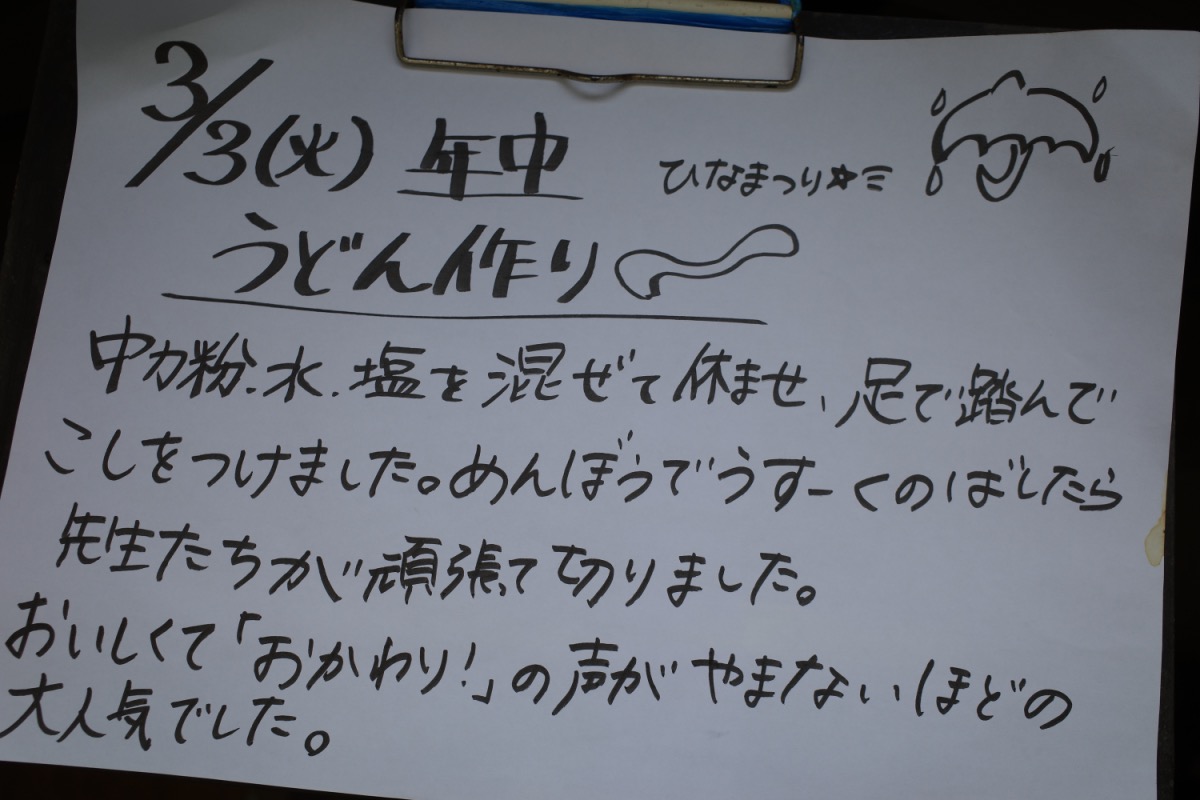 3/3(火) 年中 ひなまつり☆ミ
うどん作り
中力粉.水.塩を混ぜて休ませ、足で踏んで
こしをつけました。めんぼうでうすーくのばしたら
先生たちが頑張って切りました。
おいしくて「おかわり!」の声がやまないほどの
大人気でした。